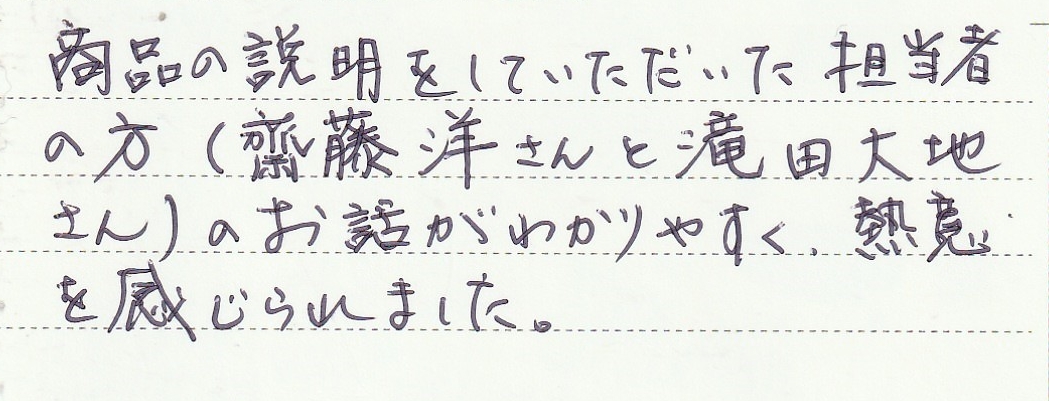 商品の説明をしていただいた担当者
の方(齋藤洋さんと滝田大地
さん)のお話がわかりやすく、熱意
を感じられました。